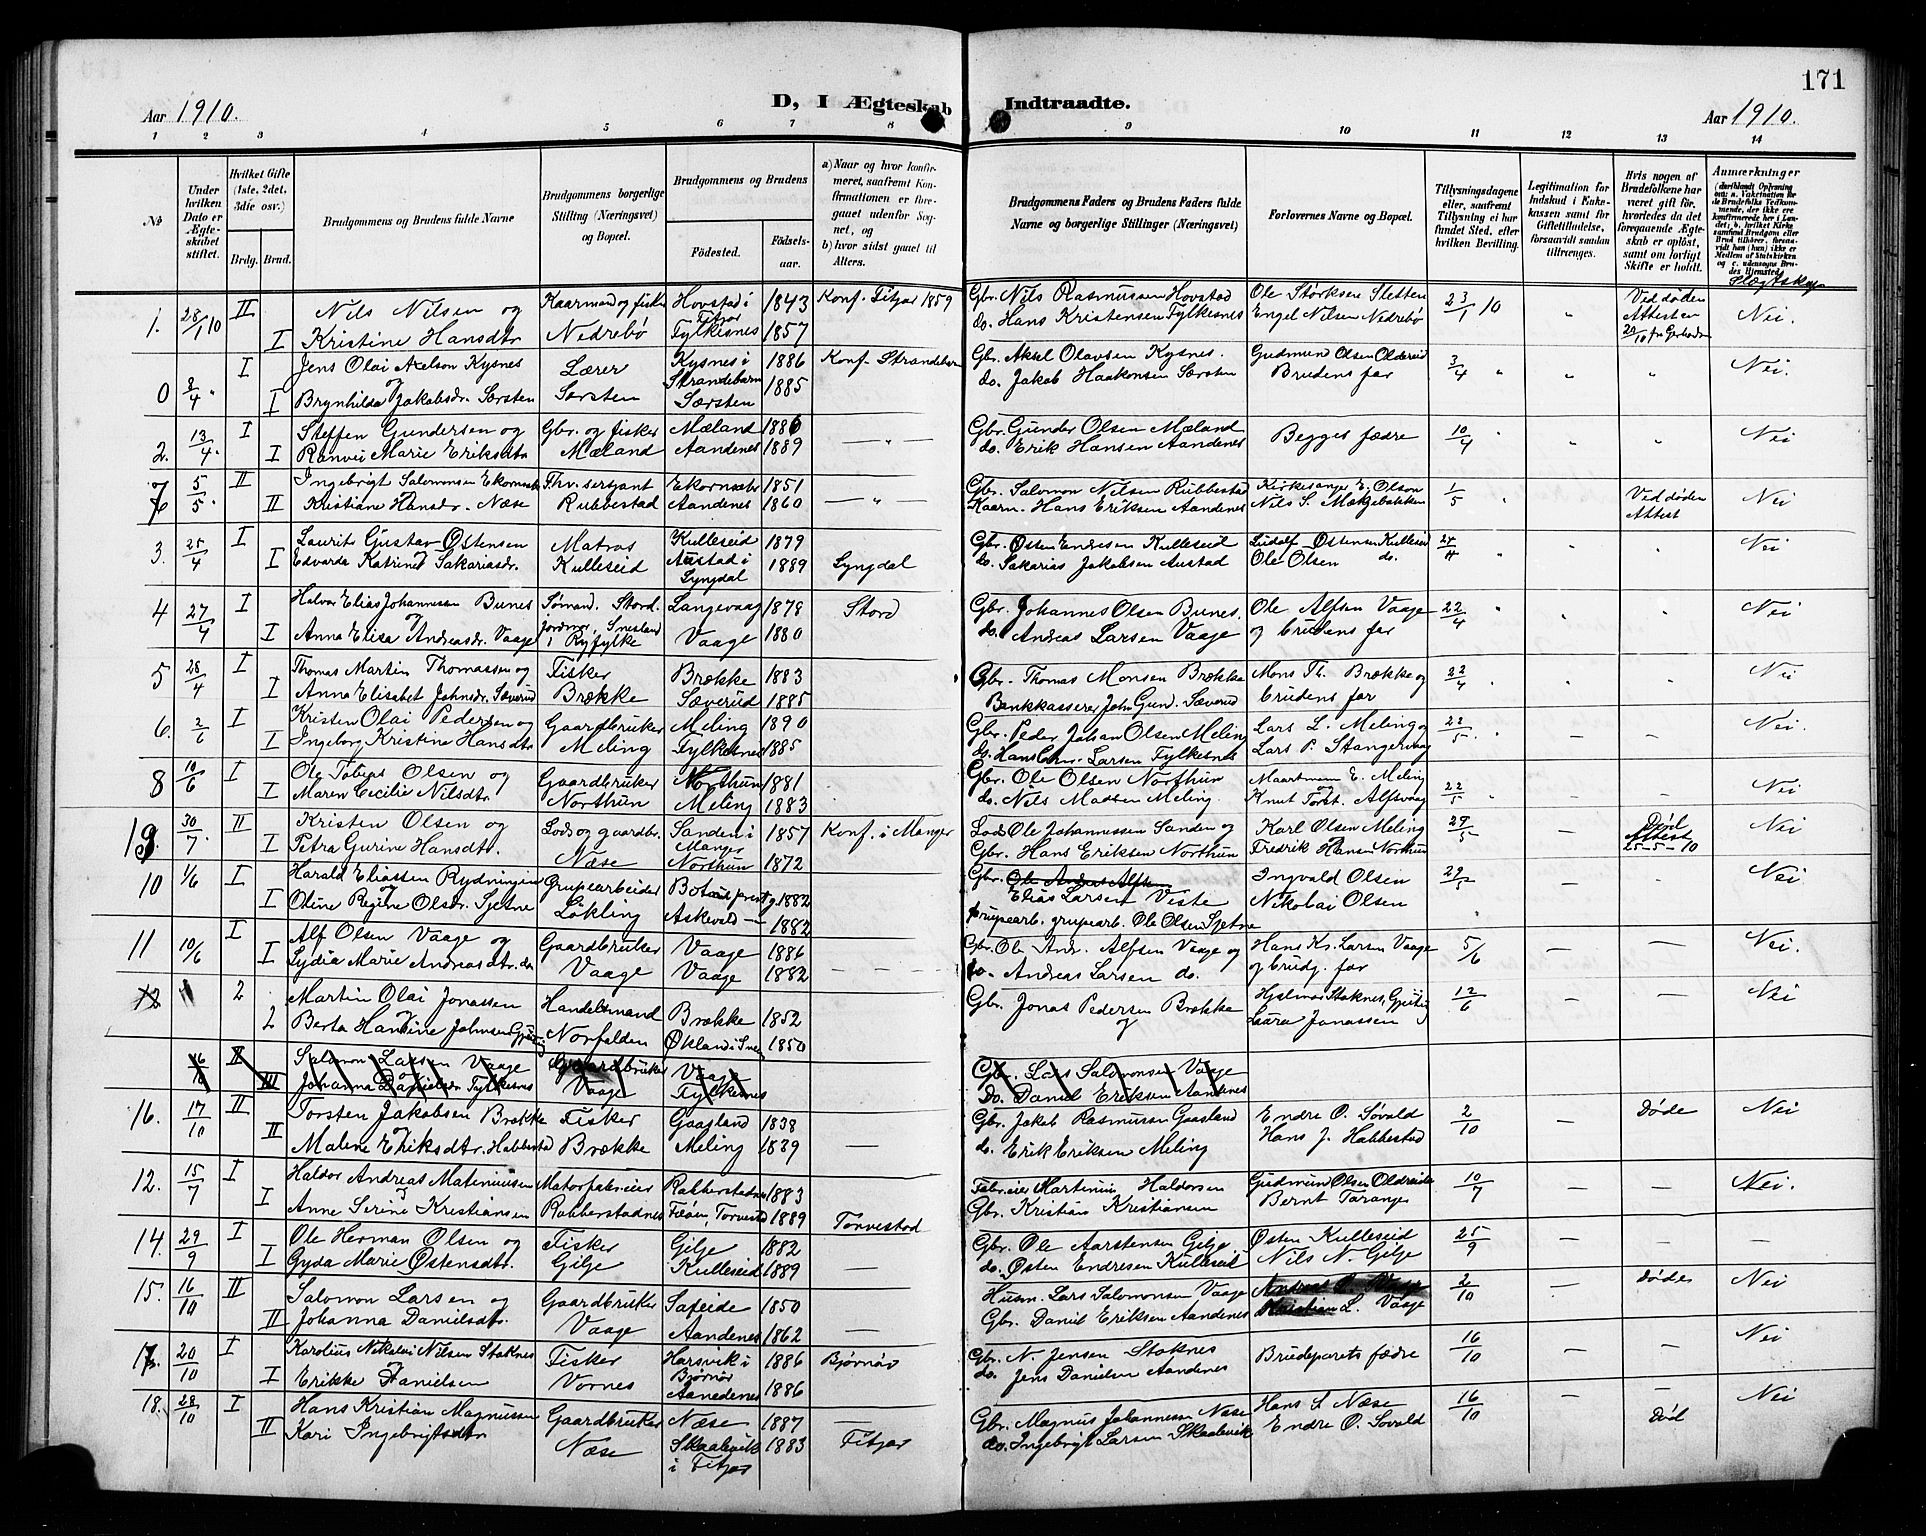 171
Aar 1910.
D, I Ægteskab Indtraadte.
Aar 1910.
1 2 3 4 5 6 7 8 9 10 11 12 13 14
No
Under hvilken Dato er Ægteskabet stiftet.
Hvilket Gifte (1ste, 2det, 3die osv.)
Brdg. Brud.
Brudgommens og Brudens fulde Navne
Brudgommens borgerlige Stilling (Næringsvei) og Bopæl.
Brudgommens og Brudens
Fødested.
Fødsels-aar.
a) Naar og hvor konfirmeret, saafremt Konfirmationen er foregaaet udenfor Sognet, og
b) hvor sidst gaaet til Alters.
Brudgommens Faders og Brudens Faders fulde Navne og borgerlige Stillinger (Næringsvei)
Forlovernes Navne og Bopæl.
Tillysningsdagene eller, saafremt Tillysning ei har fundet Sted, efter hvilken Bevilling.
Legitimation for Indskud i Enkekassen samt for Giftetilladelse, forsaavidt saadan tiltrænges.
Hvis nogen af Brudefolkene har været gift før, hvorledes da det foregaaende Ægteskab er opløst, samt om lovligt Skifte er holdt.
Anmærkninger
Slægtskap
1. 28/1 10 II Nils Nilsen og Kaarmand og fisker Hovstad i 1843 Konf. Fitjar 1859 Gbr. Nils Rasmussen Hovstad Ole Storksen Sletten 23/1 10 " Ved døden Nei.
I Kristine Hansdtr Nedrebø Fitjar Fylkesnes 1857 do. Hans Kristensen Fylkesnes Engel Nilsen Nedrebø Attest
0 8/4 " I Jens Olai Axelson Kysnes Lærer Kysnes i 1886 Konf Strandebarm Gbr. Aksel Olavsen Kysnes. Gudmund Olsen Oldereid 3/4 " " " Nei.
I og Brynhilda Jakobsdr. Særsten Særsten Strandebarm Særsten 1885 do. Jakob Haakonsen Særsten Brudens far
2. 13/4 " I Steffen Gundersen og Gbr. og fisker Mæland 1886 — " — Gbr. Gunder Olsen Mæland Begges fædre 10/4 " " " Nei
I Ranvei Marie Eriksdtr Mæland Aandenes 1889 do. Erik Hansen Aandenes
7 5/5 " II Ingebrigt Salomonsen Ekornsæter Fhv. sersjant Ekornsæter 1851 — " Gbr. Salomon Nilsen Rubbestad Kirkesanger E. Olson 1/5 " Ved døden Nei
II Kristiane Hansdr. Næse Rubbestad Aandenes 1860 Kaarm. Hans Eriksen Aandenes Nils S. Mækjebakken Attest
3. 25/4 I Laurits Gustav Østensen Matros Kulleseid 1879 Gbr. Østen Endresen Kulleseid Ludolf Østensen Kulleseid 24/4 " " " Nei
I og Edvarda Katrine Sakariasdr. Kulleseid Austad i Lyngdal 1889 Lyngdal do. Sakarias Jakobsen Austad Ole Olsen do.
4 27/4 I Halvor Elias Johannessen Bunes Sømand. Stord. Langevaag 1878 Stord Gbr. Johannes Olsen Bunes. Ole Alfsen Vaage 22/4 " " " Nei
I og Anna Elisa Andreasdr. Vaage Jordmor i Ryfylke Vaage 1880 do. Andreas Larsen Vaage og brudens far
5 28/4 I Thomas Martin Thomassen og Fisker Brække 1883 Gbr. Thomas Monsen Brække Mons Th. Brække og 22/4 " " " Nei
I Anna Elisabet Johnsdr. Sæverud Brække Sæverud 1885 Bankkasserer John Gund. Sæverud brudens far
6. 2/6 I Kristen Olai Pedersen og Gaardbruker Meling 1890 Gbr. Peder Johan Olsen Meling Lars L. Meling og 22/5 " — — Nei.
I Ingeborg Kristine Hansdtr Meling Fylkesnes 1885 do. Hans Chr. Larsen Fylkesnes Lars P. Stangervaag
8 10/6 I Ole Tobias Olsen og Gaardbruker Northun 1881 Gbr. Ole Olsen Northun Maartmann E. Meling 22/5 " — — Nei
I Maren Cecilie Nilsdtr. Northun Meling 1883 do. Nils Madsen Meling. og Knut Torst. Alfsvaag
13. 30/7 II Kristen Olsen og Lods og gaardbr. Sanden i 1857 Konf. i Manger Lods Ole Johannessen Sanden og Karl Olsen Meling 29/5 Død Attest Nei
I Petra Gurine Hansdtr. Næse Manger Northun 1872 Gbr. Hans Eriksen Northun Fredrik Hansen Northun 25-5-10
10 1/6 I Harald Eliassen Rydningen Grupearbeider 1882 Gbr. Ole Andreas Alfsen Ingvald Olsen 29/5 — " Nei.
I og Oline Regine Olsdr. Sjetne Løkling Askevold — 1882 Elias Larsen Viste Nikolai Olsen
grupearb. Ole Olsen Sjetne
11 10/6 I Alf Olsen Vaage og Gaardbruker Vaage 1886 Gbr. Ole Andr. Alfsen Vaage og Hans Kr. Larsen Vaage 5/6 — — Nei.
I Lydia Marie Andreasdtr. do Vaage Vaage 1882 — — — do. Andreas Larsen do. og brudg. far
12 2 Martin Olai Jonassen Handelsmand Brække 1852 Gbr. Jonas Pedersen Brække Hjelmar Stoknes, 12/6 — — Nei
2 og Berta Hansine Johnsen Norfolden 1850 og Laura Jonassen
II Salomon Larsen Vaage Gaardbruker Vaage Gbr. Lars Salomonsen Vaage
III og Johanna Danielsdr Fylkesnes Vaage Fylkesnes Do. Daniel Eriksen Aandenes
16. 17/10 II Torsten Jakobsen Brække Fisker Gaasland 1838 Gbr. Jakob Rasmussen Gaasland Endre O. Søvold 2/10 — Døde Nei
II og Malene Eriksdtr. Habbestad Brække Meling 1839 — do. Erik Eriksen Meling Hans J. Habbestad
12. 15/7 I Haldor Andreas Matinusen 1883 Martinus Haldorsen Gudmund Olsen Oldreide 10/7 — — Nei.
I og Anne Serine Kristiansen Rabberstadnes Føoen, Torvestad 1889 Torvestad Gbr. Kristian Kristiansen Bernt Taranger
14. 29/9 I Ole Herman Olsen og Fisker Gilje 1882 Gbr. Ole Aarstensen Gilje Østen Kulleseid 25/9 — — —
I Gyda Marie Østensdtr. Gilje Kulleseid 1889 do. Østen Endresen Kulleseid Nils N. Gilje
15. 16/10 II Salomon Larsen og Gaardbruker Safeide 1850 Husm. Lars Salomonsen Vaage 2/10 — Døde Nei
II Johanna Danielsdtr. Vaage Aandenes 1862 — Gbr. Daniel Eriksen Aandenes Kristian L. Vaage
17. 20/10 I Karolius Nikolai Nilsen Stoknes Fisker Harsvik i 1886 Bjørnør Gbr. N. Jensen Stoknes Brudeparets fædre 16/10 — — Nei
I og Erikke Danielsen Vornes Bjørnør Aanedenes 1886 do. Jens Danielsen Aandenes
18. 28/10 I Hans Kristian Magnussen Gaardbruker Næse 1887 — Gbr. Magnus Johannessen Næse Hans S. Næse 16/10 — — Nei
II Kari Ingebrigtsdtr Næse Skaalevik i Fitjar 1883 Fitjar do. Ingebrigt Larsen Skaalevik Endre O. Sovold Død